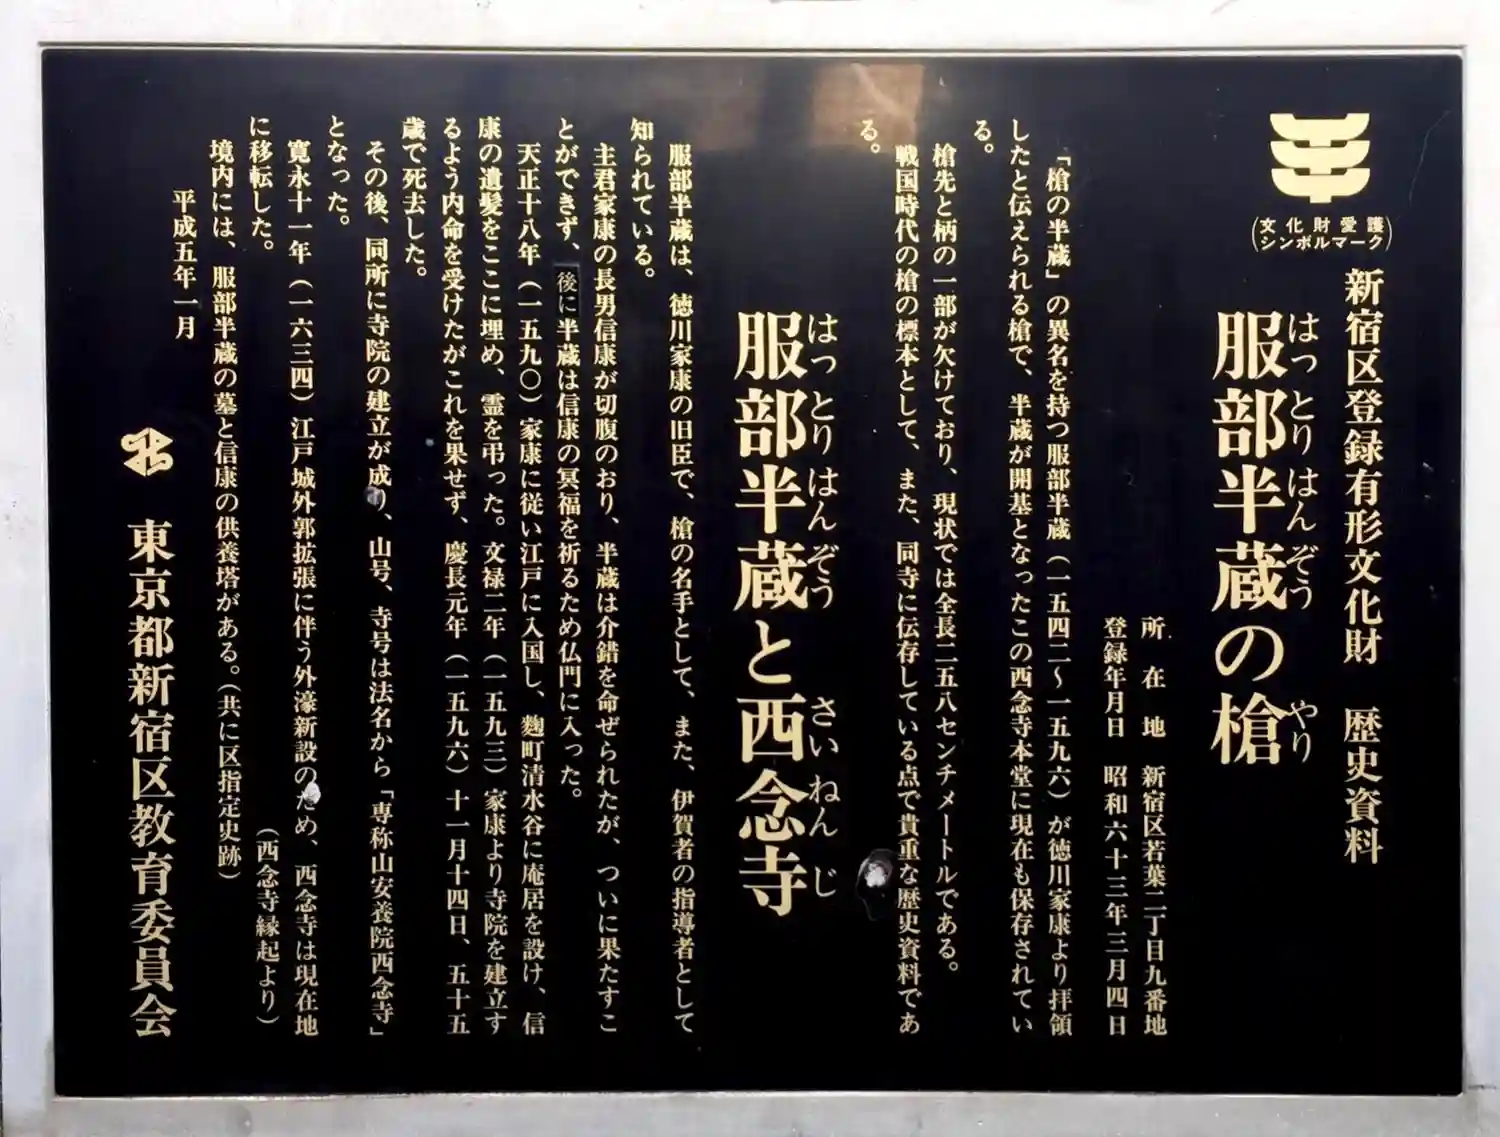 (文化財愛護
シンボルマーク)
新宿区登録有形文化財 歴史資料
服部半蔵の槍
はっとりはんぞう やり
所在地 新宿区若葉二丁目九番地
登録年月日 昭和六十三年三月四日
「槍の半蔵」の異名を持つ服部半蔵(一五四二〜一五九六)が徳川家康より拝領
したと伝えられる槍で、半蔵が開基となったこの西念寺本堂に現在も保存されてい
る。
槍先と柄の一部が欠けており、現状では全長二五八センチメートルである。
戦国時代の槍の標本として、また、同寺に伝存している点で貴重な歴史資料であ
る。
服部半蔵と西念寺
はっとりはんぞう さいねんじ
服部半蔵は、徳川家康の旧臣で、槍の名手として、また、伊賀者の指導者として
知られている。
主君家康の長男信康が切腹のおり、半蔵は介錯を命ぜられたが、ついに果たすこ
とができず、後に半蔵は信康の冥福を祈るため仏門に入った。
天正十八年(一五九〇)家康に従い江戸に入国し、麴町清水谷に庵居を設け、信
康の遺髪をここに埋め、霊を弔った。文禄二年(一五九三)家康より寺院を建立す
るよう内命を受けたがこれを果せず、慶長元年(一五九六)十一月十四日、五十五
歳で死去した。
その後、同所に寺院の建立が成り、山号、寺号は法名から「専称山安養院西念寺」
となった。
寛永十一年(一六三四)江戸城外郭拡張に伴う外濠新設のため、西念寺は現在地
に移転した。 (西念寺縁起より)
境内には、服部半蔵の墓と信康の供養塔がある。(共に区指定史跡)
平成五年一月
東京都新宿区教育委員会